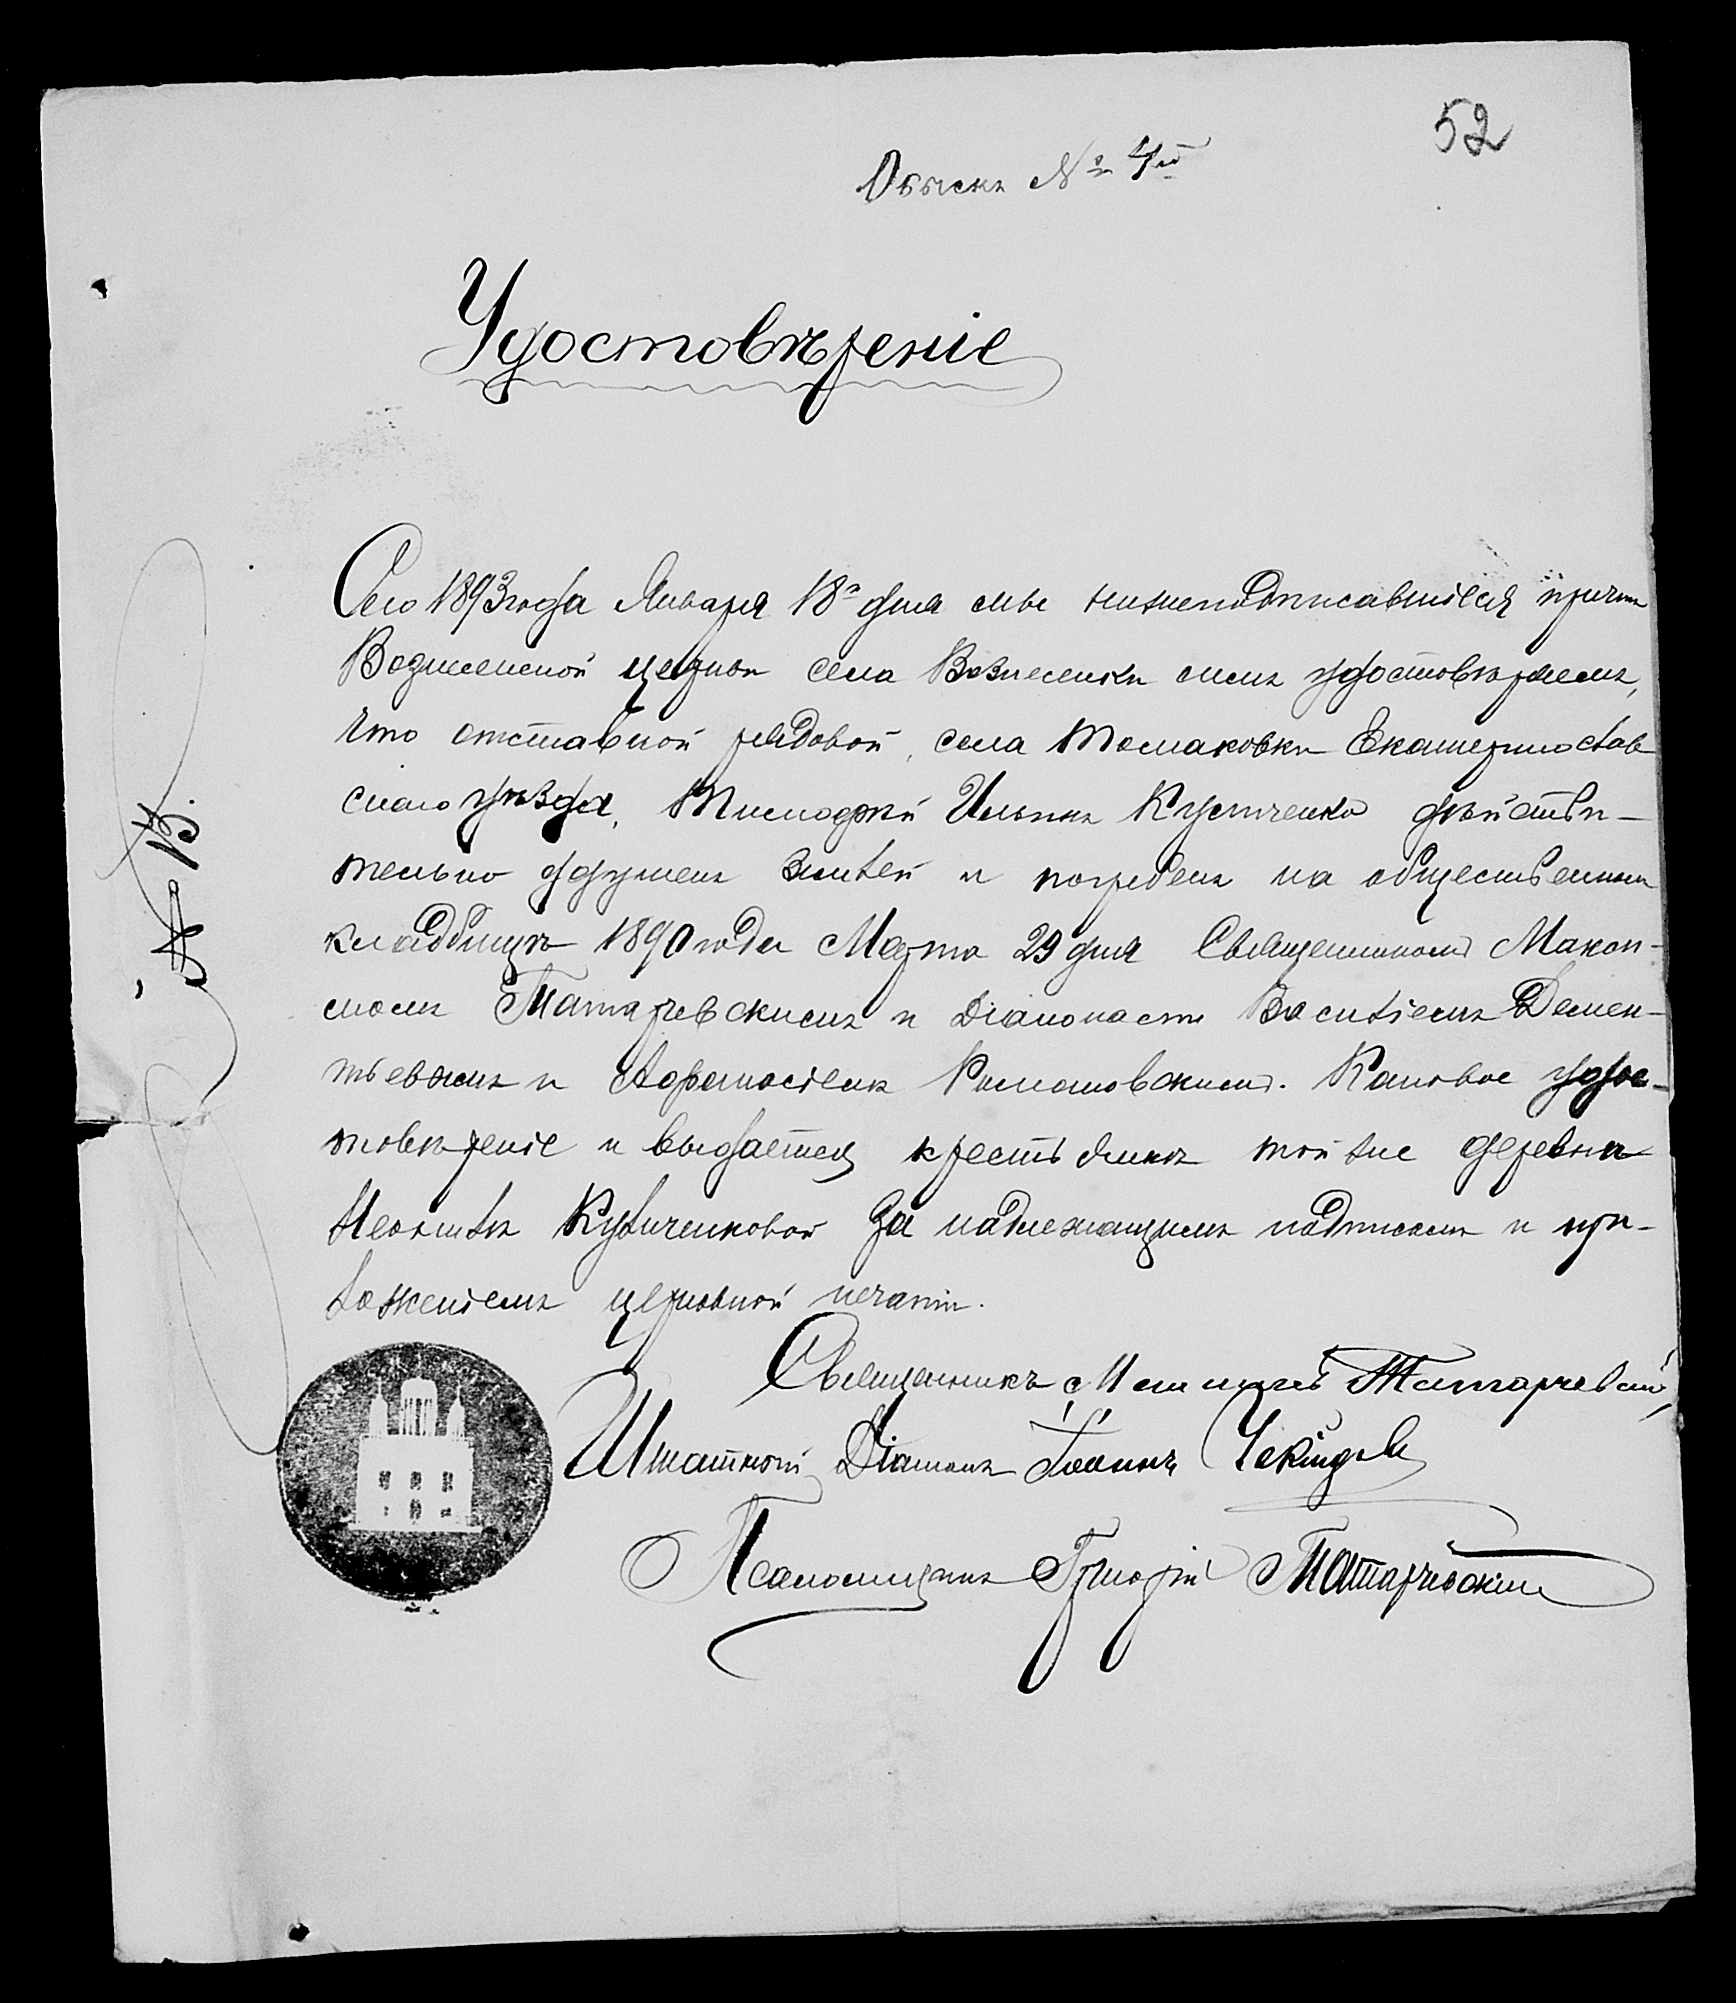 52
Обыскъ № 4й
Удостовѣреніе
Сего 1893 года Января 18го дня мы нижеподписавшіеся причтъ
Вознесенской церкви села Вознесенки симъ удостовѣряемъ,
что отставной рядовой, села Томаковки Екатеринослав
скаго уѣзда, Тимофей Ильинъ дѣйстви-
тельно лишенъ жизни и погребенъ на общественномъ
кладбищѣ 1890 года Марта 29 дня Священникомъ Макси-
момъ Татаревскимъ и Діаконами Василіемъ Демен-
тьевымъ и Афанасіемъ Романовскимъ. Каковое удос-
товѣреніе и выдается крестьянкѣ той же деревни
за надлежащимъ подписомъ и при-
ложеніемъ церковной печати.
Священникъ Максимъ Татаревскій
Штатный Діаконъ Іоаннъ
Псаломщикъ Григорій Татаревскій